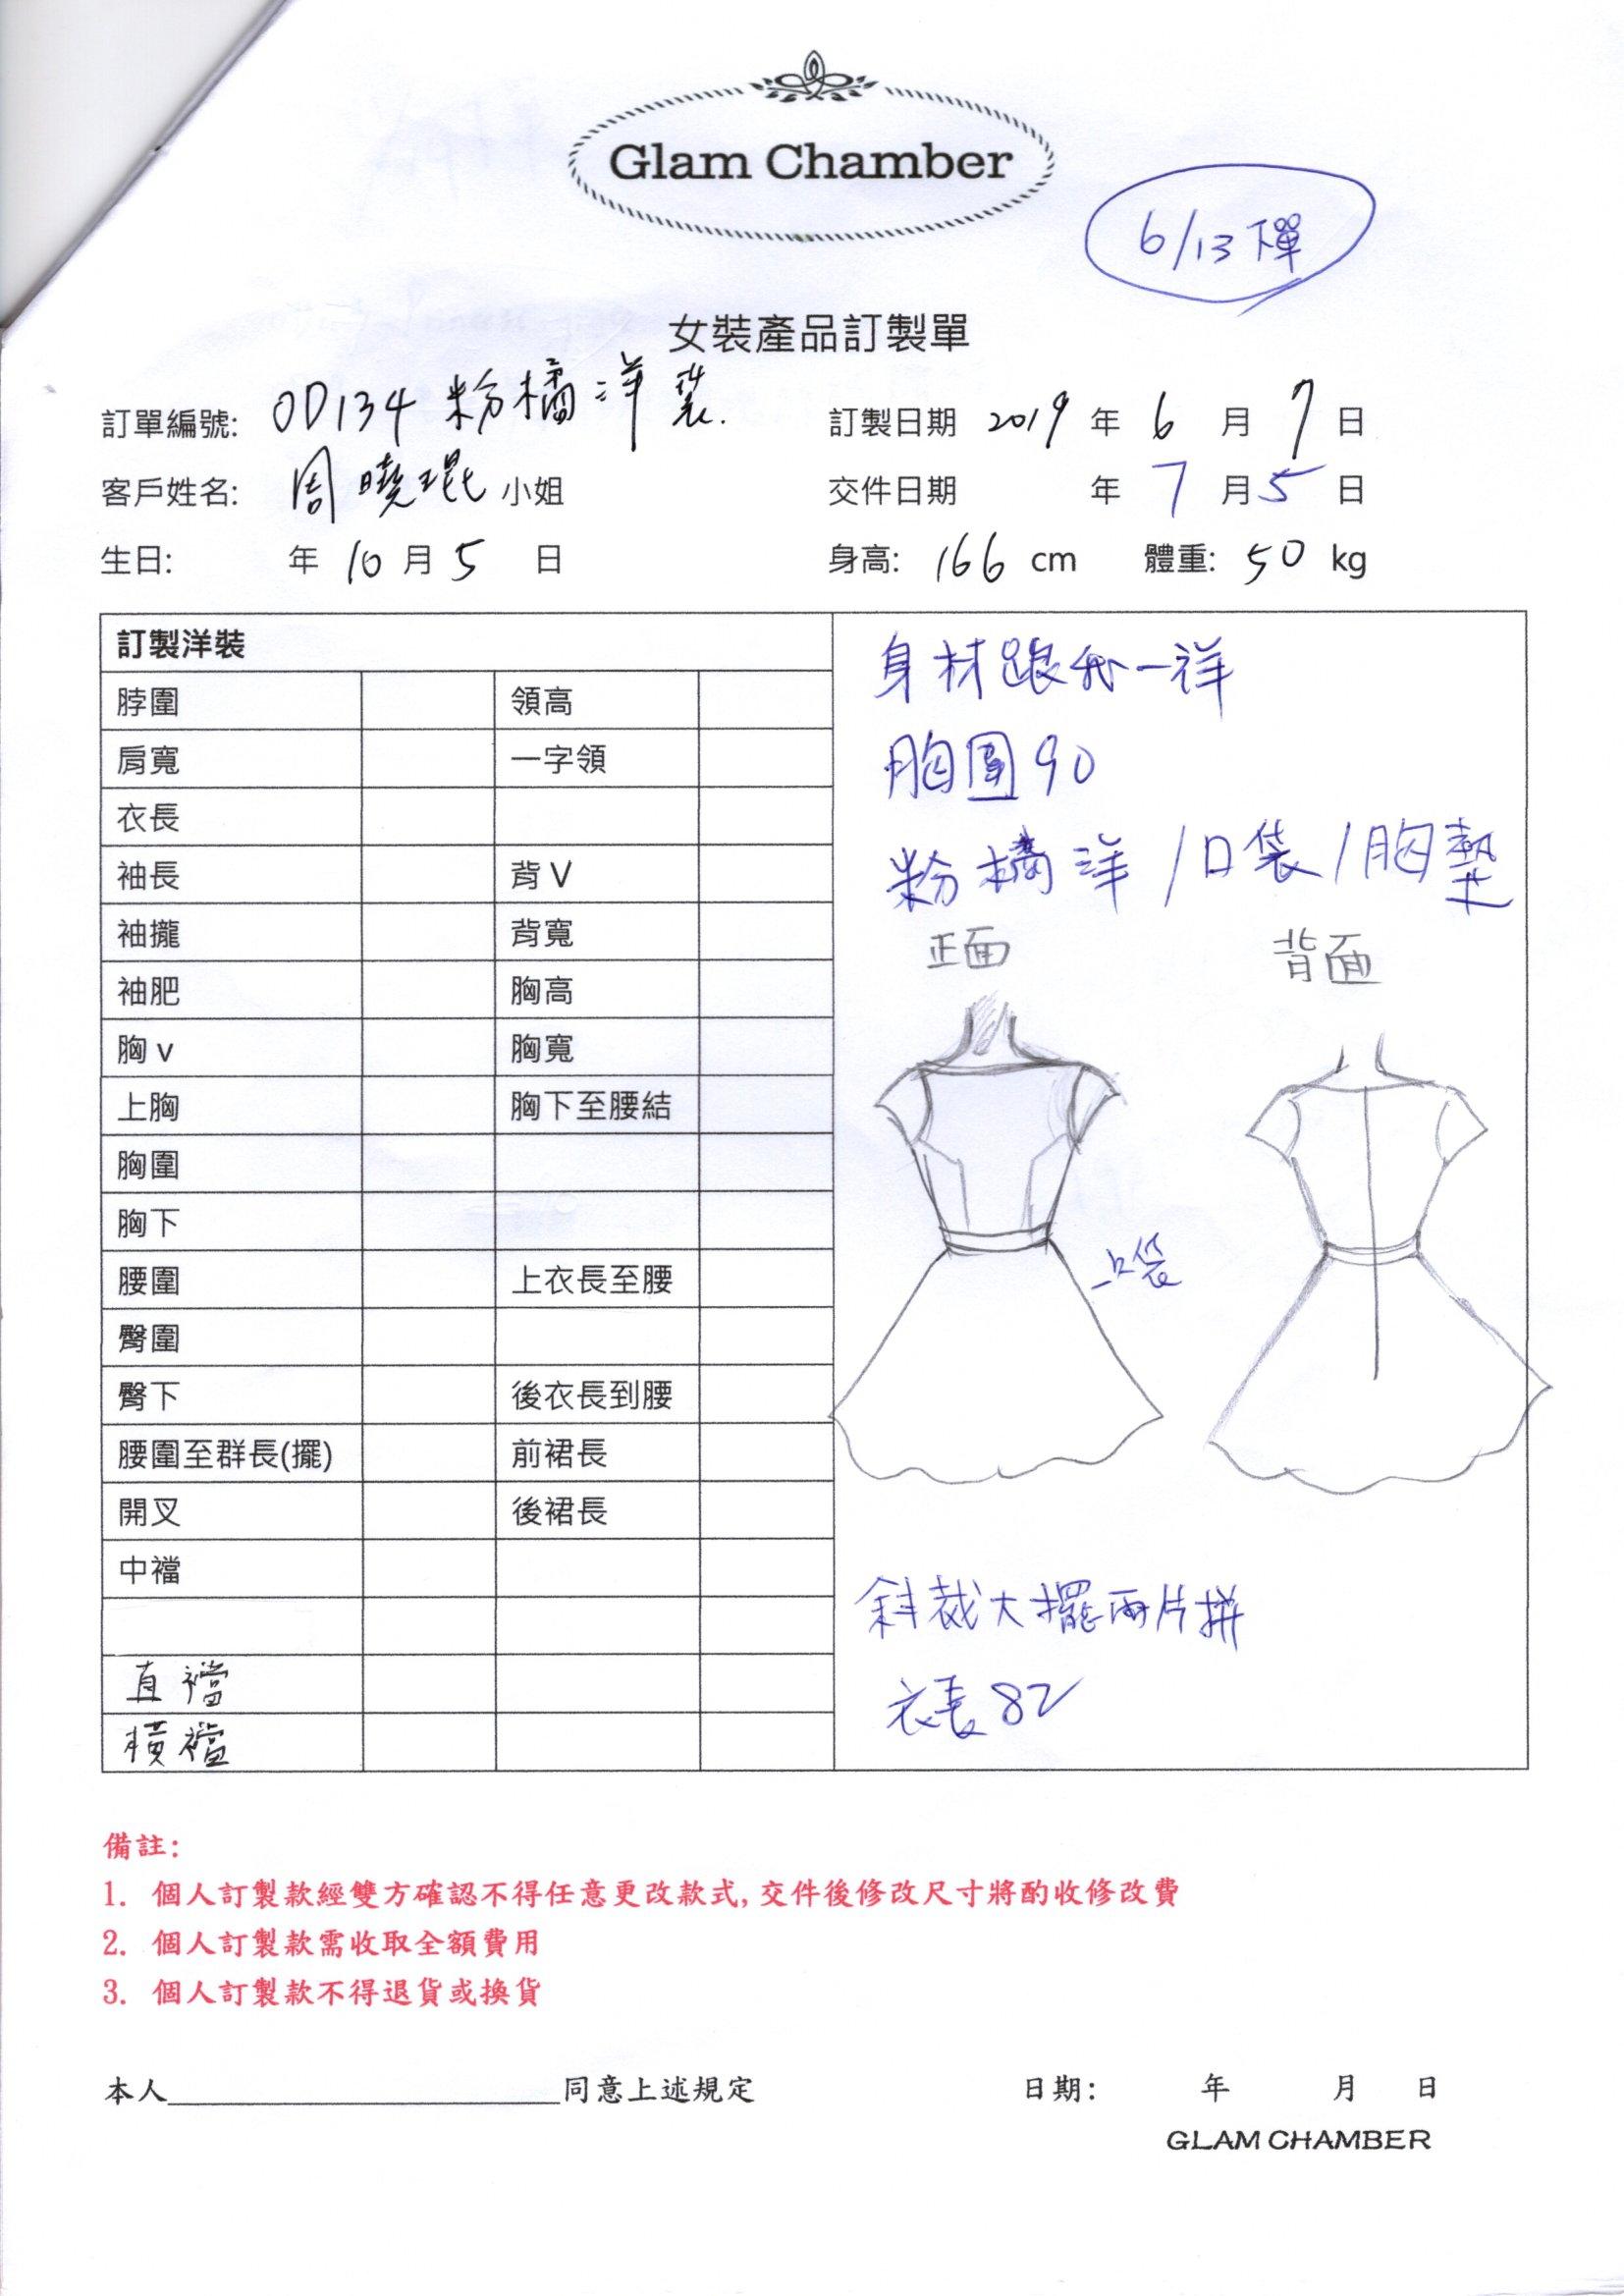 Glam Chamber
6/13下單
女裝產品訂製單
訂單編號: OD134 粉橘洋裝. 訂製日期 2019 年 6 月 7 日
客戶姓名: 周曉琨 小姐 交件日期 年 7 月 5 日
生日: 年 10 月 5 日 身高: 166 cm 體重: 50 kg
訂製洋裝
脖圍 領高
肩寬 一字領
衣長
袖長 背 V
袖攏 背寬
袖肥 胸高
胸 v 胸寬
上胸 胸下至腰結
胸圍
胸下
腰圍 上衣長至腰
臀圍
臀下 後衣長到腰
腰圍至群長(擺) 前裙長
開叉 後裙長
中襠
直襠
橫襠
身材跟我一樣
胸圍 90
粉橘洋 / 口袋 / 胸墊
正面 背面
口袋
斜裁大擺兩片拼
衣長 82
備註:
1. 個人訂製款經雙方確認不得任意更改款式, 交件後修改尺寸將酌收修改費
2. 個人訂製款需收取全額費用
3. 個人訂製款不得退貨或換貨
本人____________________同意上述規定 日期: 年 月 日
GLAM CHAMBER